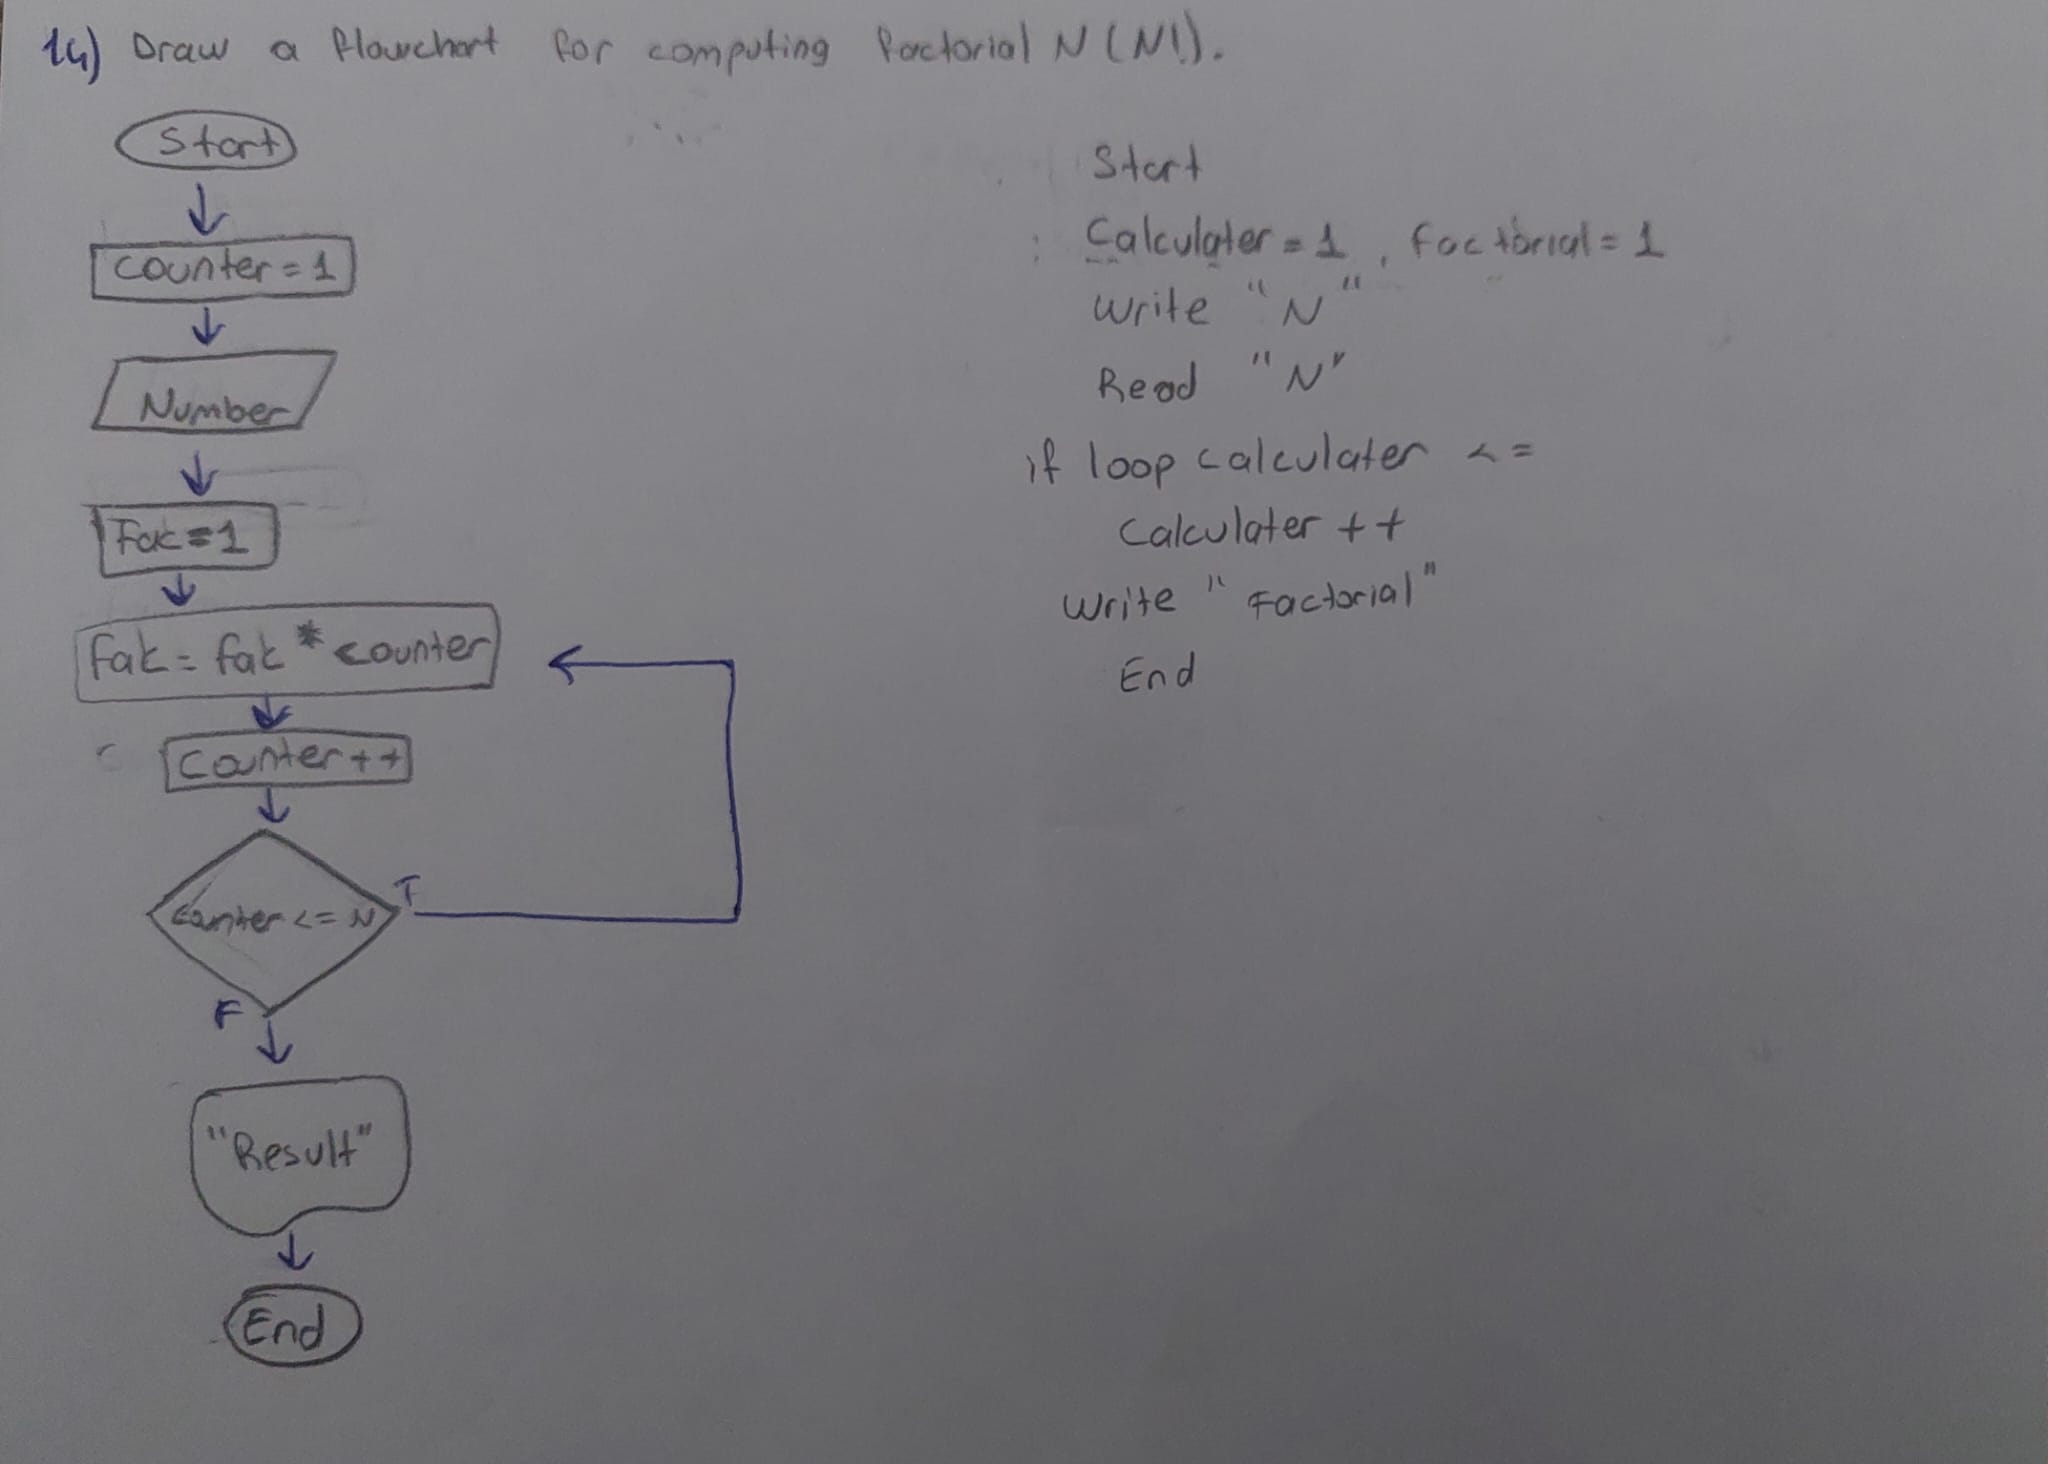 14) Draw a flowchart for computing factorial N (N!).
Start
counter = 1
Number
Fak = 1
fak = fak * counter
counter ++
counter <= N
T
F
"Result"
End
Start
Calculater = 1 , factorial = 1
write "N"
Read "N"
if loop calculater <=
Calculater ++
write "Factorial"
End